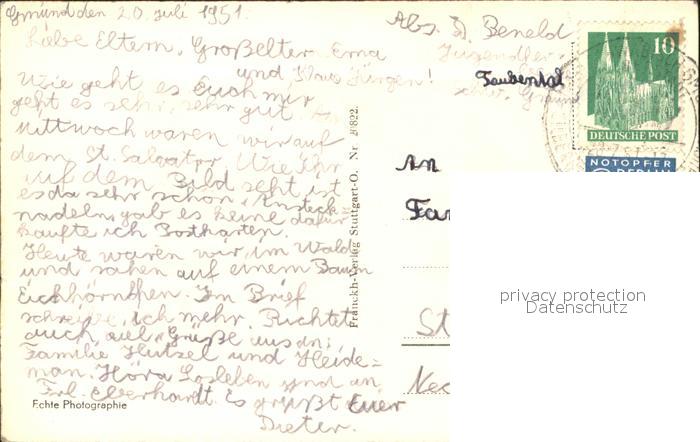 Gmünd den 20. Juli 1951.
Liebe Eltern, Großeltern Erna
und Klaus Jürgen!
Wie geht es Euch mir
geht es sehr, sehr gut. Am
Mittwoch waren wir auf
dem St. Salvator. Wie Ihr
auf dem Bild seht ist
es da sehr schön, Ansteck=
nadeln gab es keine dafür
kaufte ich Postkarten.
Heute waren wir im Wald
und sahen auf einem Baum
Eichhörnchen. Im Brief
schreibe ich mehr. Richtet
auch viel Grüße aus an:
Familie Hutzel und Heide=
man. Hora Losleben und an
Frl. Eberhardt. Es grüßt Euer
Dieter.
Echte Photographie
Franckh-Verlag Stuttgart-O. Nr. 822.
Abs. D. Beneld
Jugendher
Taubental
Schw. Gmünd
10
DEUTSCHE POST
NOTOPFER
BERLIN
An
Fam
St
Nec
privacy protection
Datenschutz